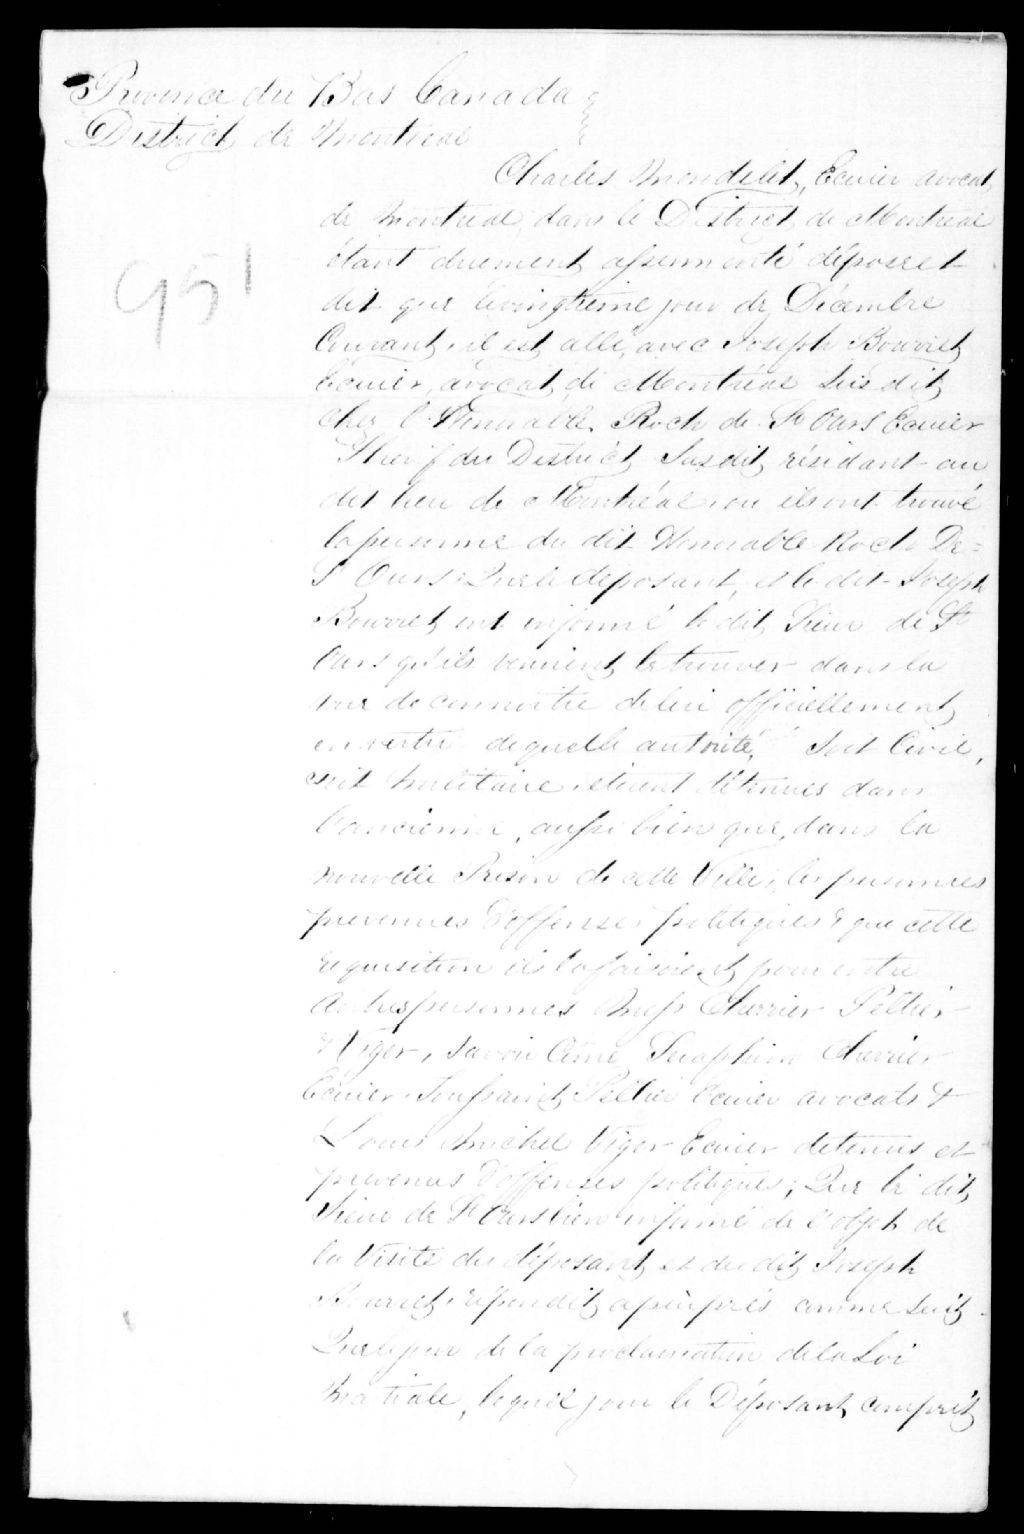 Province du Bas Canada
District de Montreal
Charles Mondelet, Ecuier avocat
de Montreal, dans le District de Montreal
étant duement assermenté dépose et
dit que le vingtième jour de Décembre
Courant, il est allé, avec Joseph Bourret
Ecuier, avocat, de Montréal susdit,
chez l'Honorable Roch de St Ours Ecuier
Sherif du District susdit, résidant au
dit lieu de Montréal, ou ils ont trouvé
la personne du dit Honorable Roch De=
St Ours; Que le déposant, et le dit Joseph
Bourret ont informé le dit Sieur de St
Ours qu'ils venoient le trouver dans la
vue de connoitre de lui officiellement
en vertu de quelle autorité, soit Civile,
soit Militaire, etoient détenues dans
l'ancienne, aussi bien que, dans la
nouvelle Prison de cette Ville, les personnes
prevenues d'offenses politiques & que cette
requisition ils la faisoient pour entre
autres personnes Mess Cherrier Peltier
& Viger, savoir Côme Seraphin Cherrier
Ecuier, Toussaint Peltier Ecuier avocats &
Louis Michel Viger Ecuier detenus et
prevenus d'offenses politiques; Que le dit
Sieur de St Ours bien informé de l'objet de
la Visite du déposant et du dit Joseph
Bourret, répondit à peu près comme suit.
Que le jour de la proclamation de la Loi
Martiale, lequel jour le Déposant comprit
951